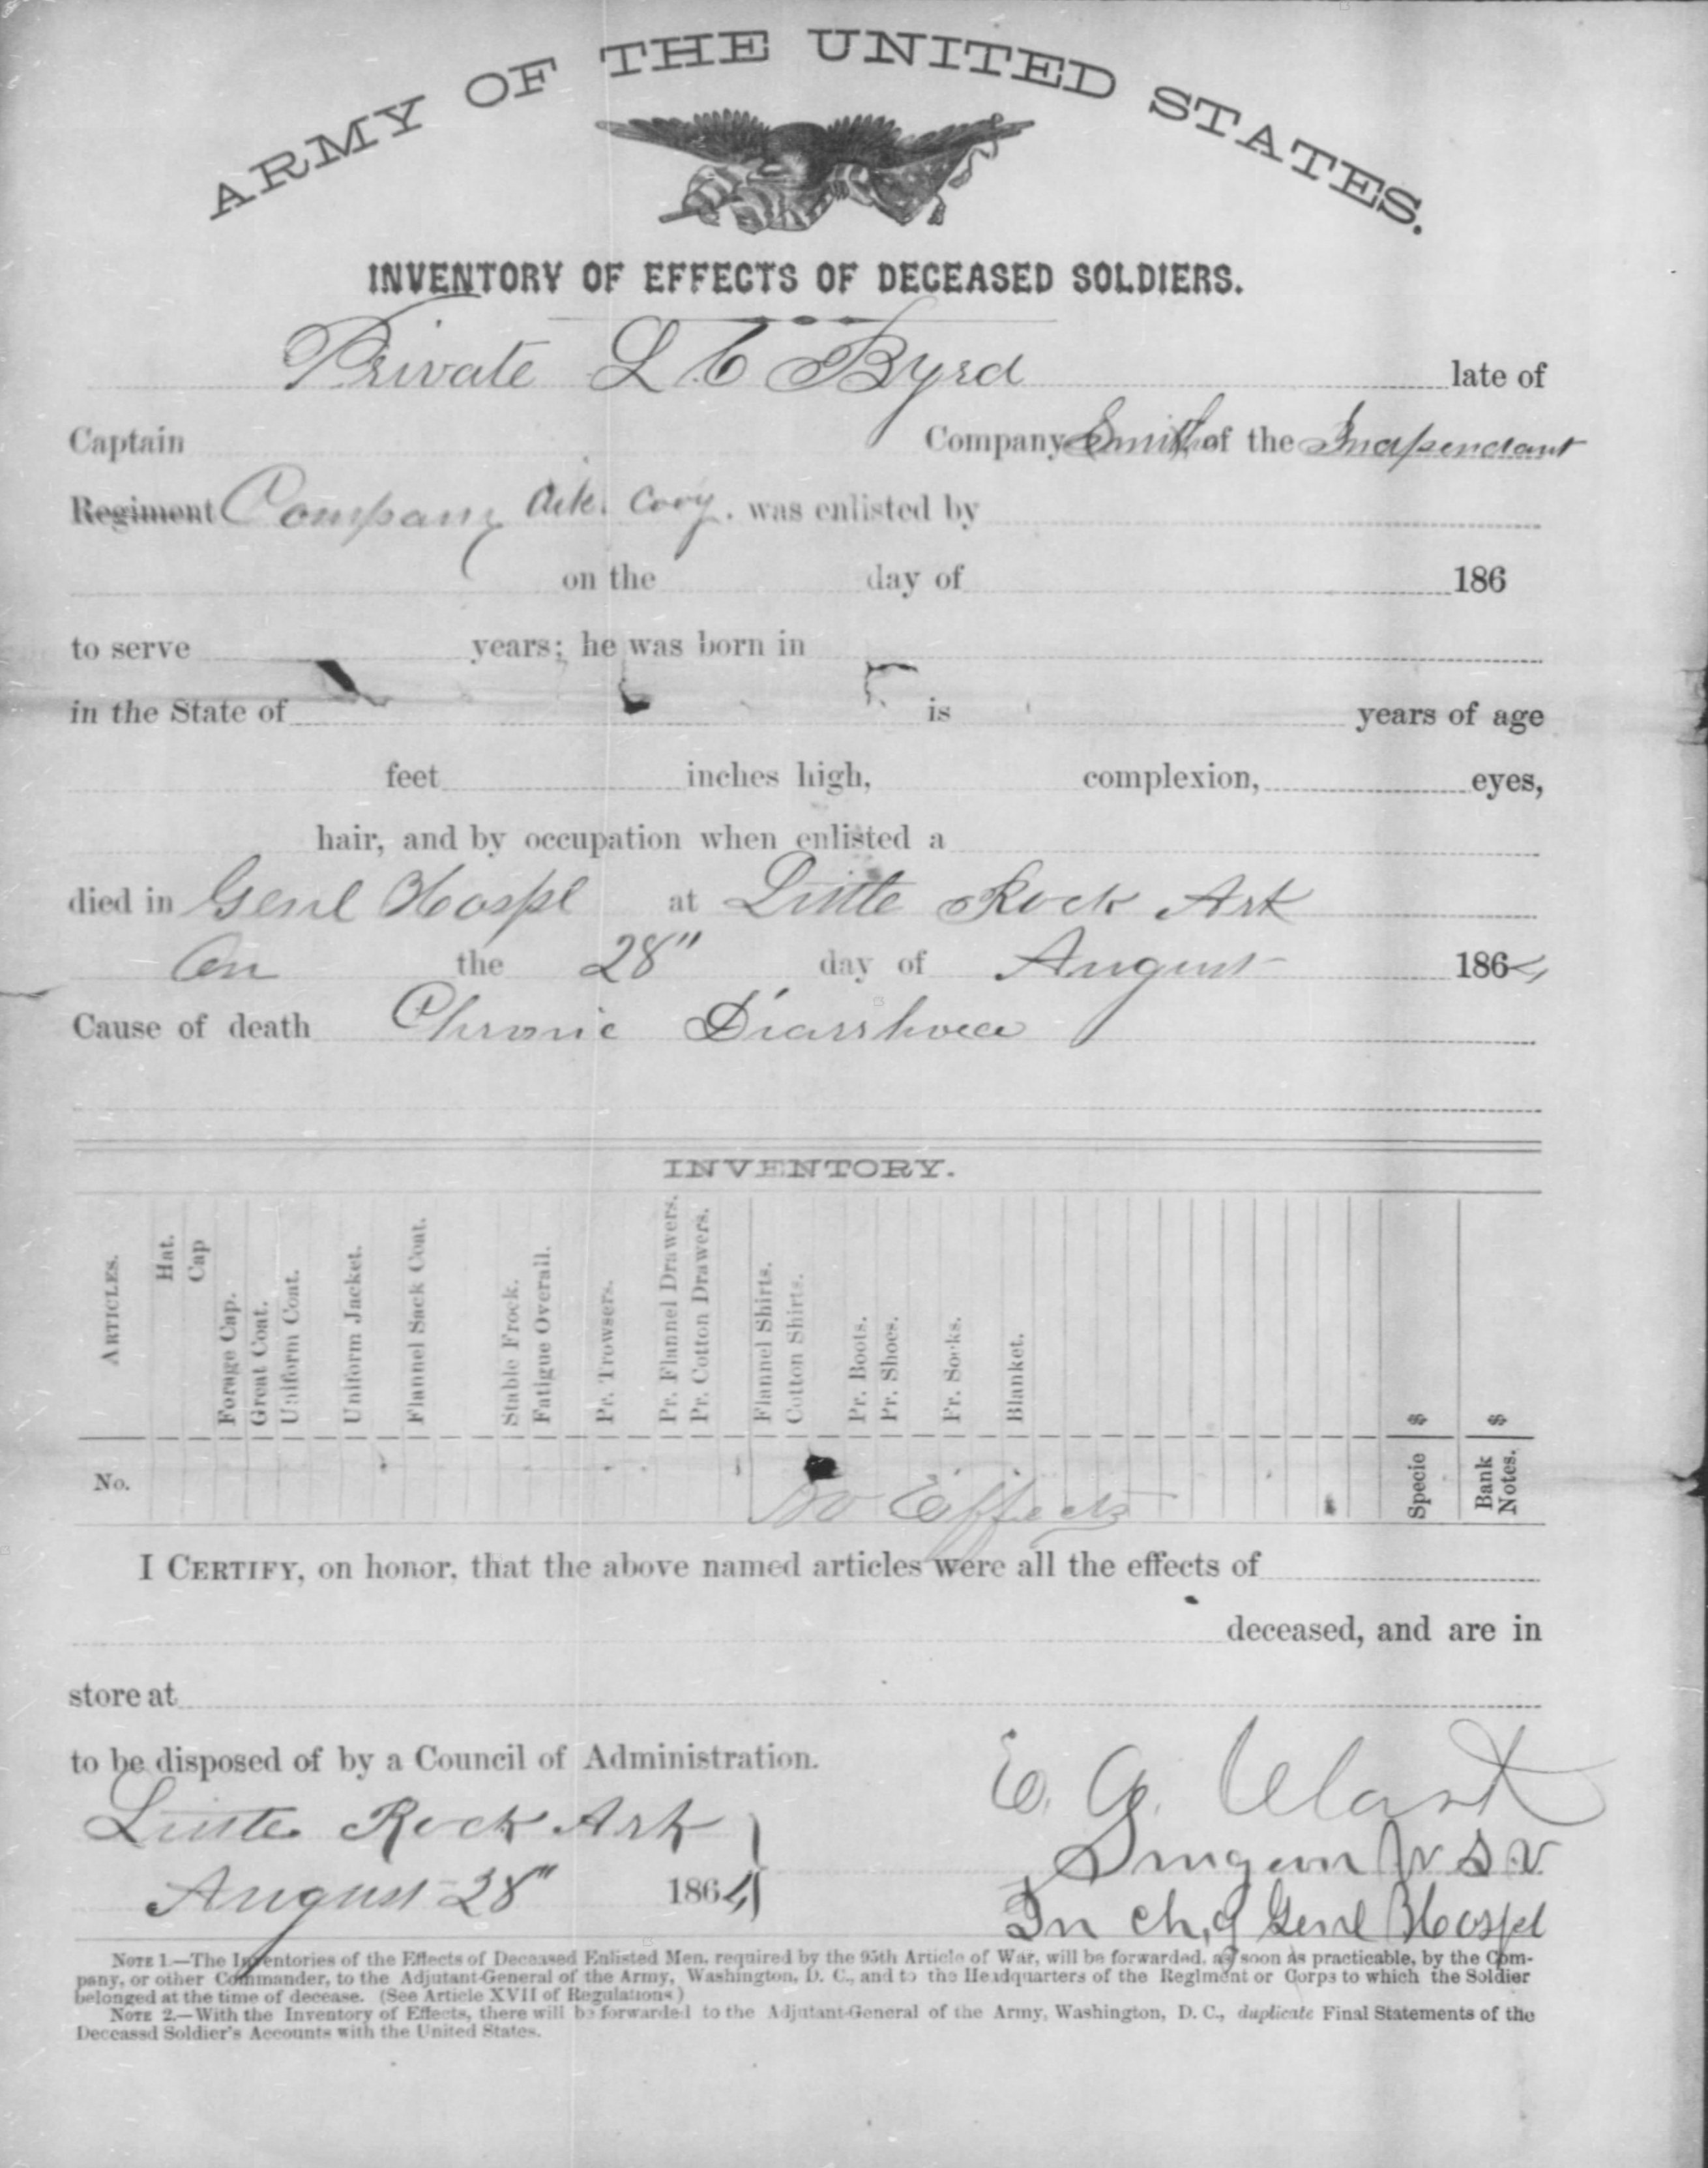 ARMY OF THE UNITED STATES.
INVENTORY OF EFFECTS OF DECEASED SOLDIERS.
Private L C Byrd late of
Captain Company Smith of the Independant
Regiment Company Ark. Cavy. was enlisted by
on the day of 186
to serve years; he was born in
in the State of is years of age
feet inches high, complexion, eyes,
hair, and by occupation when enlisted a
died in Genl Hospl at Little Rock Ark
On the 28" day of August 1864
Cause of death Chronic Diarrhoea
INVENTORY.
ARTICLES.
Hat.
Cap
Forage Cap.
Great Coat.
Uniform Coat.
Uniform Jacket.
Flannel Sack Coat.
Stable Frock.
Fatigue Overall.
Pr. Trowsers.
Pr. Flannel Drawers.
Pr. Cotton Drawers.
Flannel Shirts.
Cotton Shirts.
Pr. Boots.
Pr. Shoes.
Pr. Socks.
Blanket.
$
$
No. No Effects
Specie
Bank
Notes.
I CERTIFY, on honor, that the above named articles were all the effects of
deceased, and are in
store at
to be disposed of by a Council of Administration.
Little Rock Ark
August 28" 1864
E. A. Clark
Surgeon U S V
In ch,g Genl Hospl
NOTE 1.—The Inventories of the Effects of Deceased Enlisted Men, required by the 95th Article of War, will be forwarded, as soon as practicable, by the Com-
pany, or other Commander, to the Adjutant-General of the Army, Washington, D. C., and to the Headquarters of the Regiment or Corps to which the Soldier
belonged at the time of decease. (See Article XVII of Regulations)
NOTE 2.—With the Inventory of Effects, there will be forwarded to the Adjutant-General of the Army, Washington, D. C., duplicate Final Statements of the
Deceassd Soldier's Accounts with the United States.